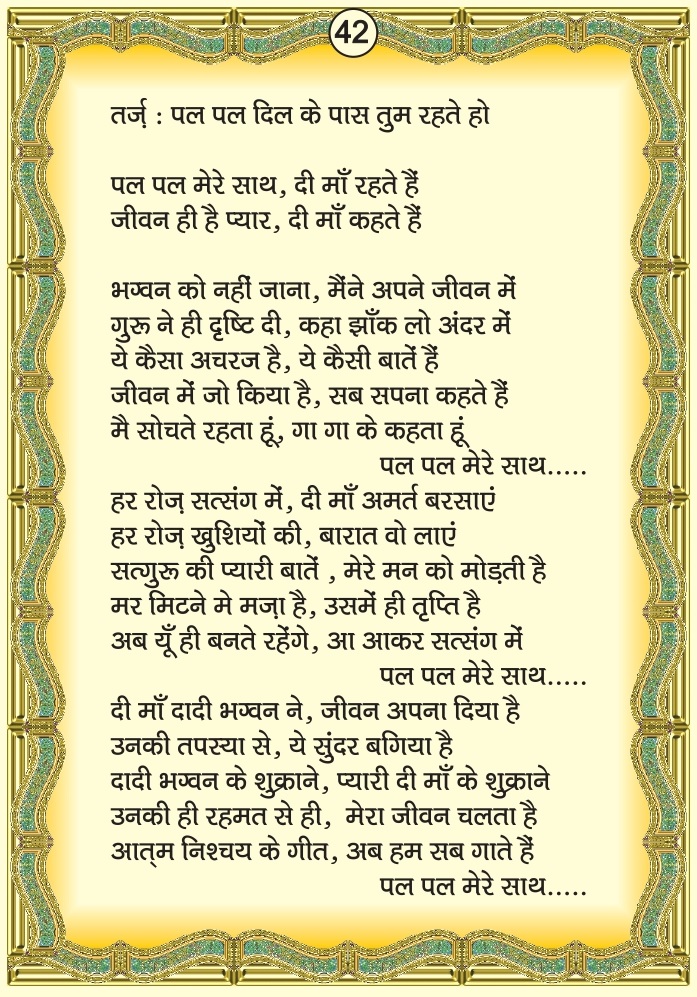 42
तर्ज़ : पल पल दिल के पास तुम रहते हो
पल पल मेरे साथ, दी माँ रहते हैं
जीवन ही है प्यार, दी माँ कहते हैं
भग्वन को नहीं जाना, मैंने अपने जीवन में
गुरू ने ही दृष्टि दी, कहा झाँक लो अंदर में
ये कैसा अचरज है, ये कैसी बातें हैं
जीवन में जो किया है, सब सपना कहते हैं
मै सोचते रहता हूं, गा गा के कहता हूं
पल पल मेरे साथ.....
हर रोज़ सत्संग में, दी माँ अमर्त बरसाएं
हर रोज़ खुशियों की, बारात वो लाएं
सत्गुरू की प्यारी बातें , मेरे मन को मोड़ती है
मर मिटने मे मज़ा है, उसमें ही तृप्ति है
अब यूँ ही बनते रहेंगे, आ आकर सत्संग में
पल पल मेरे साथ.....
दी माँ दादी भग्वन ने, जीवन अपना दिया है
उनकी तपस्या से, ये सुंदर बगिया है
दादी भग्वन के शुक्राने, प्यारी दी माँ के शुक्राने
उनकी ही रहमत से ही, मेरा जीवन चलता है
आत्म निश्चय के गीत, अब हम सब गाते हैं
पल पल मेरे साथ.....